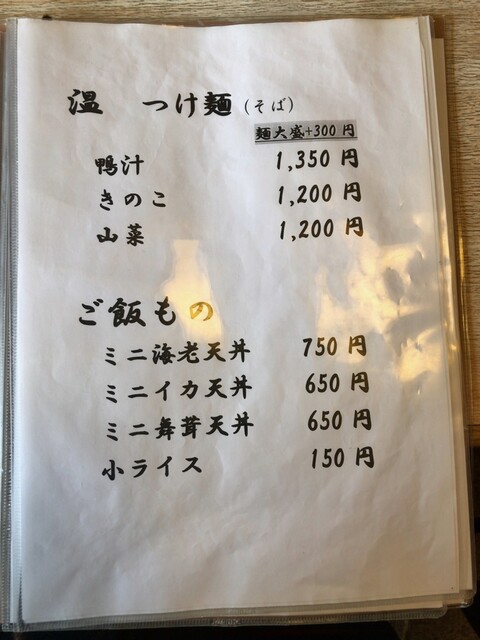 温 つけ麺（そば）
麺大盛+300円
鴨汁 1,350円
きのこ 1,200円
山菜 1,200円
ご飯もの
ミニ海老天丼 750円
ミニイカ天丼 650円
ミニ舞茸天丼 650円
小ライス 150円